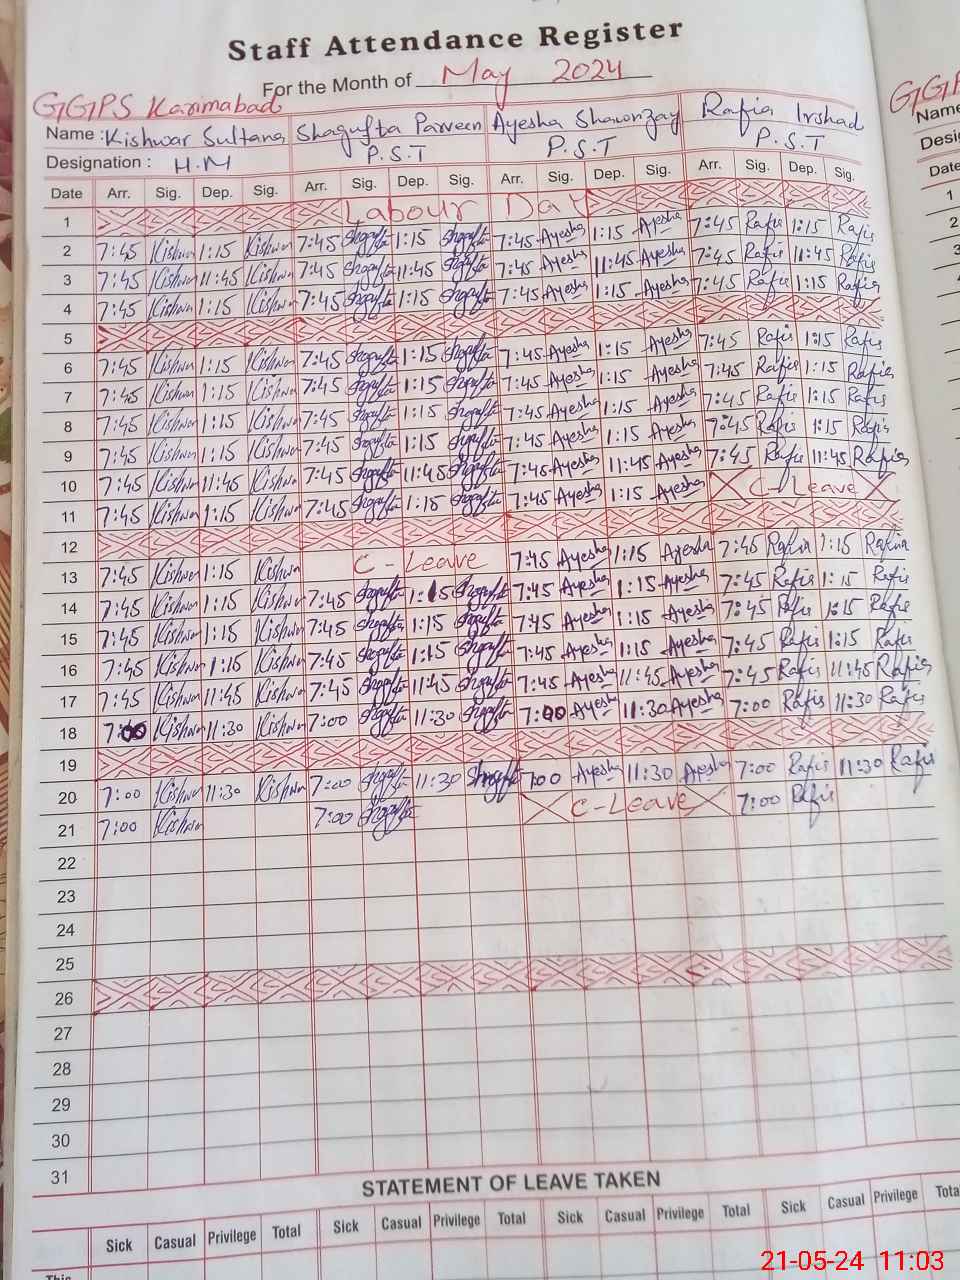 Staff Attendance Register
For the Month of May 2024
GGPS Karimabad
Name : Kishwar Sultana Shagufta Parveen Ayesha Shawnzay Rafia Irshad
Designation : H.M P.S.T P.S.T P.S.T
Date Arr. Sig. Dep. Sig. Arr. Sig. Dep. Sig. Arr. Sig. Dep. Sig. Arr. Sig. Dep. Sig.
1 Labour Day
2 7:45 Kishwar 1:15 Kishwar 7:45 Shagufta 1:15 Shagufta 7:45 Ayesha 1:15 Ayesha 7:45 Rafia 1:15 Rafia
3 7:45 Kishwar 11:45 Kishwar 7:45 Shagufta 11:45 Shagufta 7:45 Ayesha 11:45 Ayesha 7:45 Rafia 11:45 Rafia
4 7:45 Kishwar 1:15 Kishwar 7:45 Shagufta 1:15 Shagufta 7:45 Ayesha 1:15 Ayesha 7:45 Rafia 1:15 Rafia
5
6 7:45 Kishwar 1:15 Kishwar 7:45 Shagufta 1:15 Shagufta 7:45 Ayesha 1:15 Ayesha 7:45 Rafia 1:15 Rafia
7 7:45 Kishwar 1:15 Kishwar 7:45 Shagufta 1:15 Shagufta 7:45 Ayesha 1:15 Ayesha 7:45 Rafia 1:15 Rafia
8 7:45 Kishwar 1:15 Kishwar 7:45 Shagufta 1:15 Shagufta 7:45 Ayesha 1:15 Ayesha 7:45 Rafia 1:15 Rafia
9 7:45 Kishwar 1:15 Kishwar 7:45 Shagufta 1:15 Shagufta 7:45 Ayesha 1:15 Ayesha 7:45 Rafia 1:15 Rafia
10 7:45 Kishwar 11:45 Kishwar 7:45 Shagufta 11:45 Shagufta 7:45 Ayesha 11:45 Ayesha 7:45 Rafia 11:45 Rafia
11 7:45 Kishwar 1:15 Kishwar 7:45 Shagufta 1:15 Shagufta 7:45 Ayesha 1:15 Ayesha C-Leave
12
13 7:45 Kishwar 1:15 Kishwar C-Leave 7:45 Ayesha 1:15 Ayesha 7:45 Rafia 1:15 Rafia
14 7:45 Kishwar 1:15 Kishwar 7:45 Shagufta 1:15 Shagufta 7:45 Ayesha 1:15 Ayesha 7:45 Rafia 1:15 Rafia
15 7:45 Kishwar 1:15 Kishwar 7:45 Shagufta 1:15 Shagufta 7:45 Ayesha 1:15 Ayesha 7:45 Rafia 1:15 Rafia
16 7:45 Kishwar 1:15 Kishwar 7:45 Shagufta 1:15 Shagufta 7:45 Ayesha 1:15 Ayesha 7:45 Rafia 1:15 Rafia
17 7:45 Kishwar 11:45 Kishwar 7:45 Shagufta 11:45 Shagufta 7:45 Ayesha 11:45 Ayesha 7:45 Rafia 11:45 Rafia
18 7:00 Kishwar 11:30 Kishwar 7:00 Shagufta 11:30 Shagufta 7:00 Ayesha 11:30 Ayesha 7:00 Rafia 11:30 Rafia
19
20 7:00 Kishwar 11:30 Kishwar 7:00 Shagufta 11:30 Shagufta 7:00 Ayesha 11:30 Ayesha 7:00 Rafia 11:30 Rafia
21 7:00 Kishwar 7:00 Shagufta C-Leave 7:00 Rafia
22
23
24
25
26
27
28
29
30
31
STATEMENT OF LEAVE TAKEN
Sick Casual Privilege Total Sick Casual Privilege Total Sick Casual Privilege Total Sick Casual Privilege Total
This
21-05-24 11:03